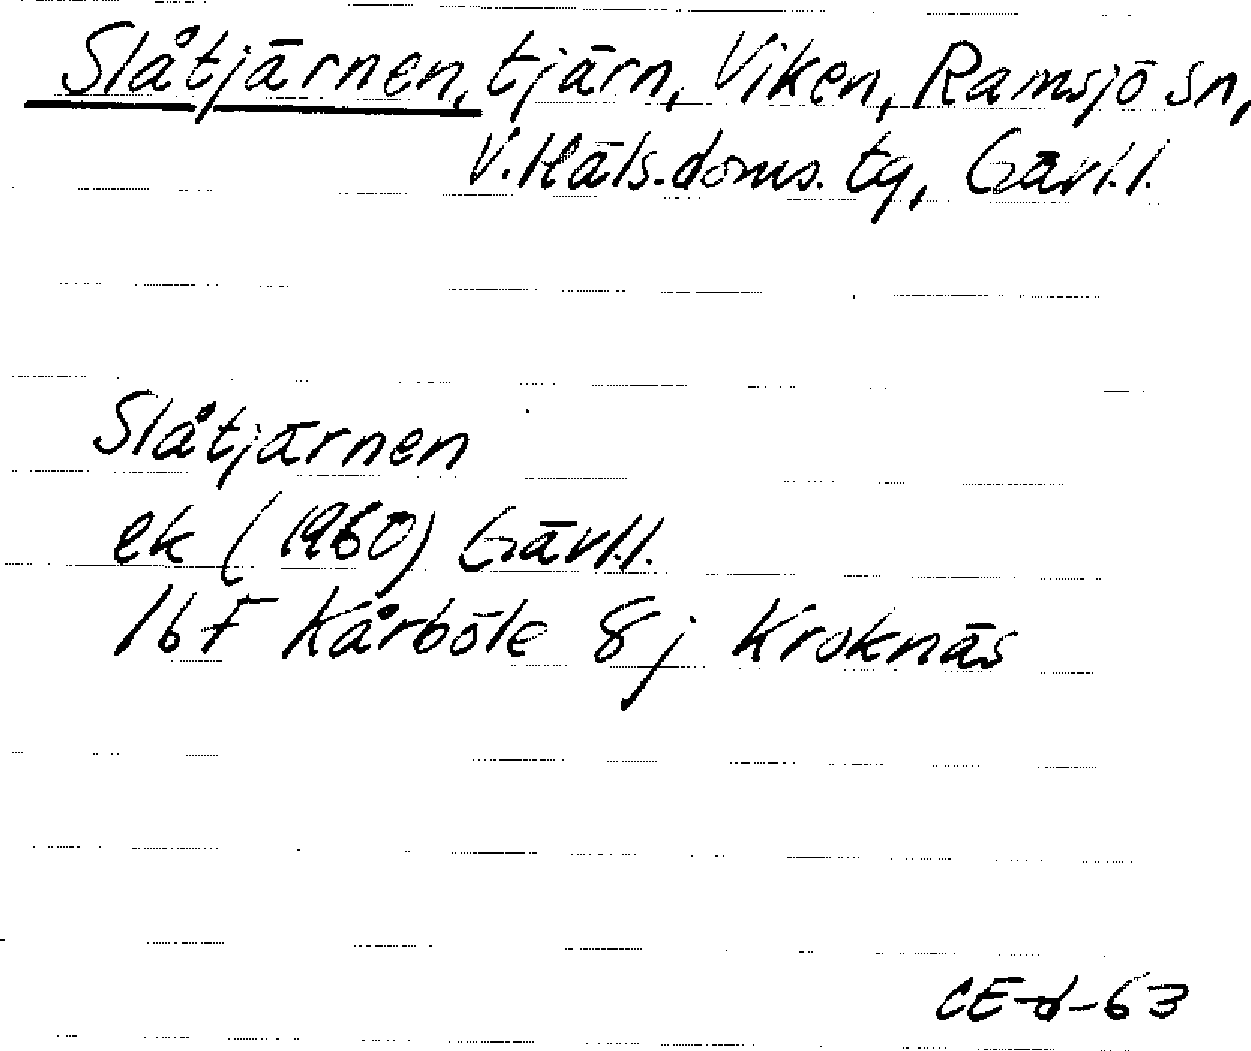 Slåtjärnen, tjärn, Viken, Ramsjö sn,
V. Häls. doms. tg, Gävl.l.
Slåtjärnen
ek (1960) Gävl.l.
16F Kårböle 8j Kroknäs
CE-d-63